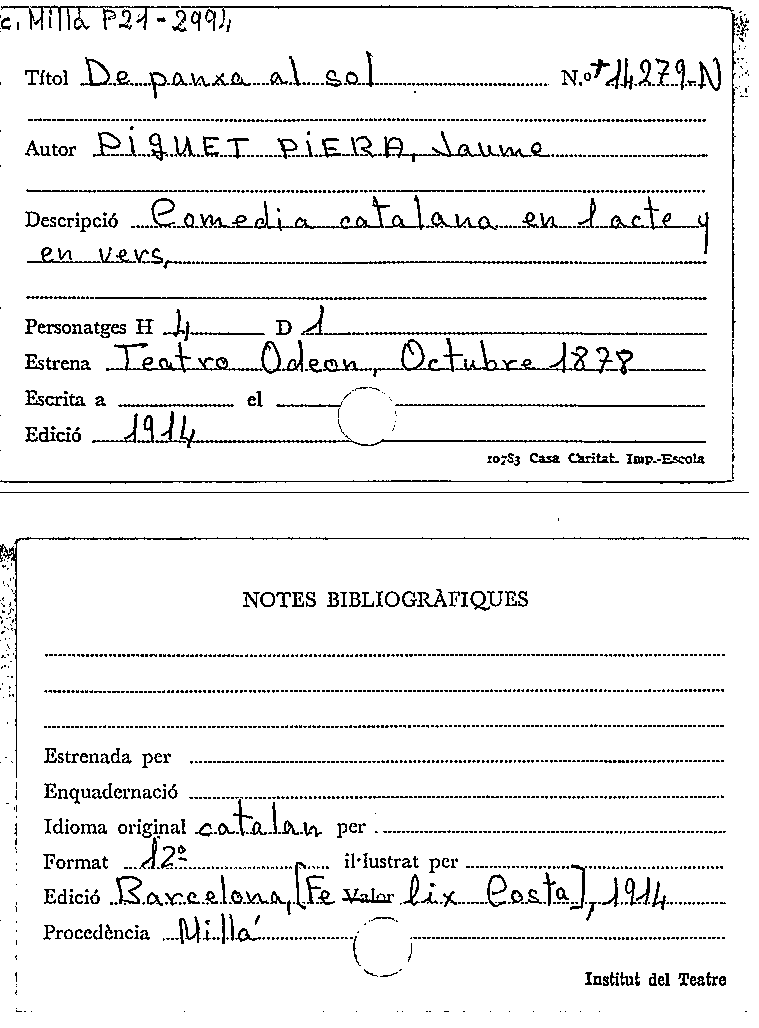 c. Millà P21-2994
Títol De panxa al sol N.º +14279-N
Autor PIQUET PIERA, Jaume
Descripció Comedia catalana en 1 acte y
en vers,
Personatges H 4 D 1
Estrena Teatro Odeon, Octubre 1878
Escrita a el
Edició 1914
10783 Casa Caritat. Imp.-Escola
NOTES BIBLIOGRÀFIQUES
Estrenada per
Enquadernació
Idioma original catalan per
Format 12º il·lustrat per
Edició Barcelona, [Fe Valor lix Costa], 1914
Procedència Millá
Institut del Teatre